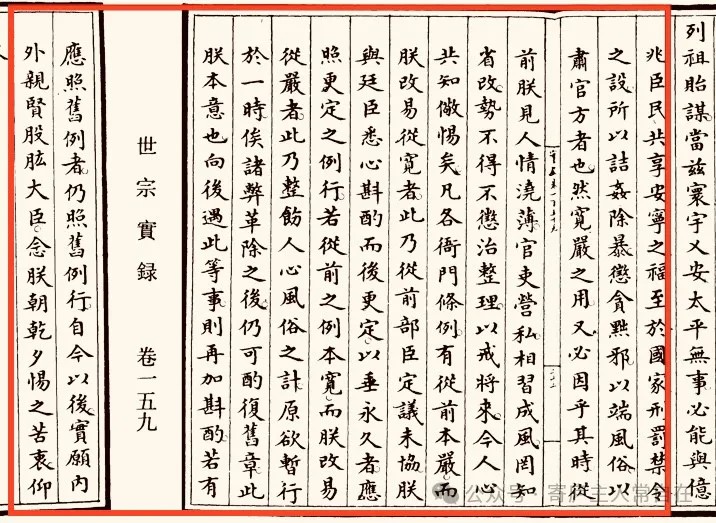 列祖貽謀當茲寰宇乂安太平無事必能與億
兆臣民共享安寧之福至於國家刑罰禁令
之設所以詰姦除暴懲貪黜邪以端風俗以
肅官方者也然寬嚴之用又必因乎其時從
前朕見人情澆薄官吏營私相習成風罔知
省改勢不得不懲治整理以戒將來今人心
共知儆惕矣凡各衙門條例有從前本嚴而
朕改易從寬者此乃從前部臣定議未協朕
與廷臣悉心斟酌而後更定以垂永久者應
照更定之例行若從前之例本寬而朕改易
從嚴者此乃整飭人心風俗之計原欲暫行
於一時俟諸弊革除之後仍可酌復舊章此
朕本意也向後遇此等事則再加斟酌若有
世宗實録 卷一五九
應照舊例者仍照舊例行自今以後實願內
外親賢股肱大臣念朕朝乾夕惕之苦衷仰
公众号